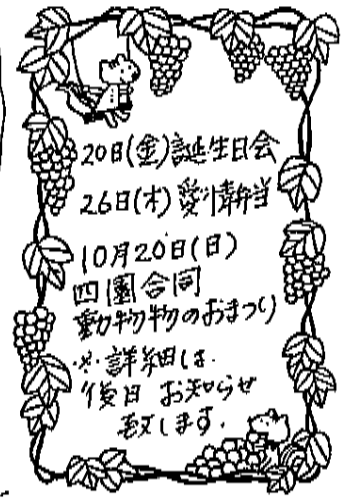 20日(金)誕生日会
26日(木)愛情弁当
10月20日(日)
四園合同
動物物のおまつり
※詳細は、
後日 お知らせ
致します.